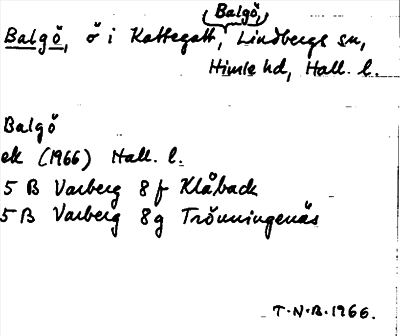 Balgö,
Balgö, ö i Kattegatt, Lindbergs sn,
Himle hd, Hall. l.
Balgö
ek (1966) Hall. l.
5 B Varberg 8 f Klåback
5 B Varberg 8 g Trönningenäs
T.N.B. 1966.